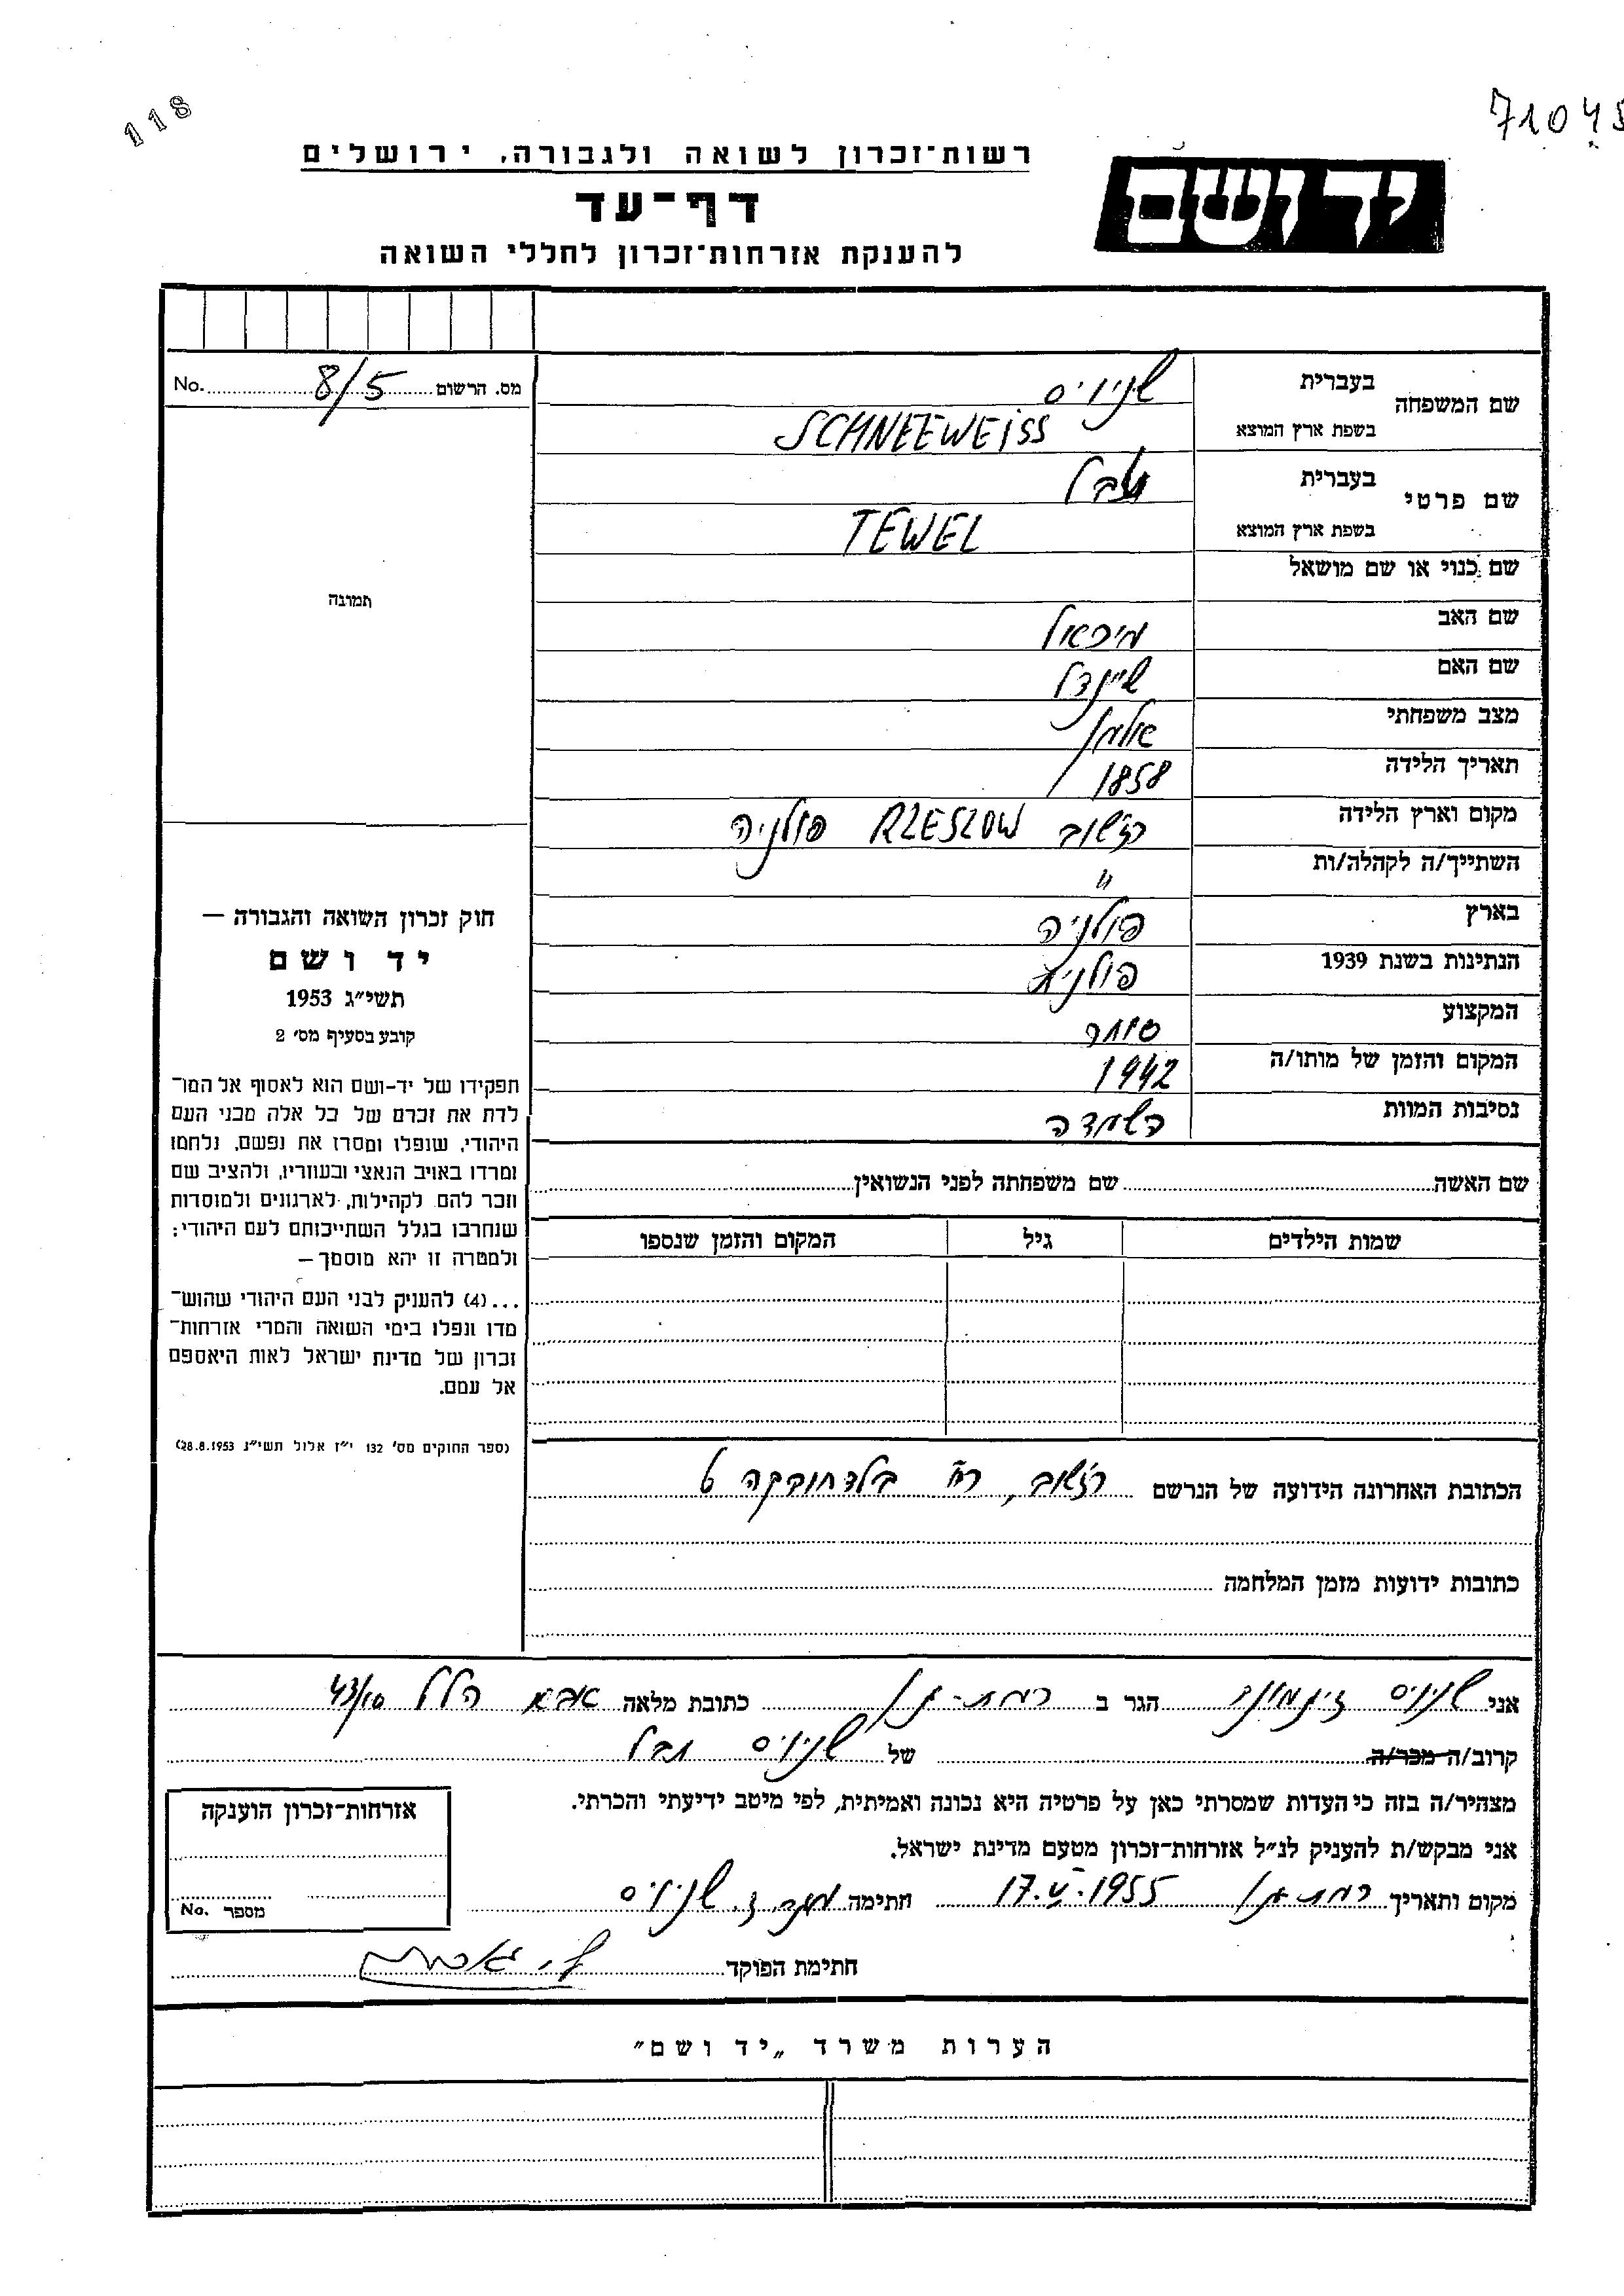 118
71048
רשות־זכרון לשואה ולגבורה, ירושלים
יד ושם
דף־עד
להענקת אזרחות־זכרון לחללי השואה
מס. הרשום 8/5 No.
שם המשפחה בעברית שניוויס
בשפת ארץ המוצא SCHNEEWEISS
שם פרטי בעברית טבל
בשפת ארץ המוצא TEWEL
שם כנוי או שם מושאל
שם האב מיכאל
שם האם שיינדל
מצב משפחתי אלמן
תאריך הלידה 1858
מקום וארץ הלידה רז'שוב RZESZOW פולניה
השתייך/ה לקהלה/ות "
בארץ פולניה
הנתינות בשנת 1939 פולנית
המקצוע סוחר
המקום והזמן של מותו/ה 1942
נסיבות המוות השמדה
תמונה
חוק זכרון השואה והגבורה —
יד ושם
תשי״ג 1953
קובע בסעיף מס׳ 2
תפקידו של יד-ושם הוא לאסוף אל המו־
לדת את זכרם של כל אלה מבני העם
היהודי, שנפלו ומסרו את נפשם, נלחמו
ומרדו באויב הנאצי ובעוזריו, ולהציב שם
וזכר להם, לקהילות, לארגונים ולמוסדות
שנחרבו בגלל השתייכותם לעם היהודי;
ולמטרה זו יהא מוסמך —
...(4) להעניק לבני העם היהודי שהוש־
מדו ונפלו בימי השואה והמרי אזרחות־
זכרון של מדינת ישראל לאות היאספם
אל עמם.
(ספר החוקים מס׳ 132 י״ז אלול תשי״ג 28.8.1953)
שם האשה שם משפחתה לפני הנשואין
שמות הילדים גיל המקום והזמן שנספו
הכתובת האחרונה הידועה של הנרשם רז'שוב, רח'
כתובות ידועות מזמן המלחמה
אני שניוויס זיגמונד הגר ב רמת-גן כתובת מלאה אבא הלל 43/10
קרוב/ה מכר/ה של שניוויס טבל
מצהיר/ה בזה כי העדות שמסרתי כאן על פרטיה היא נכונה ואמיתית, לפי מיטב ידיעתי והכרתי.
אני מבקש/ת להעניק לנ״ל אזרחות־זכרון מטעם מדינת ישראל.
מקום ותאריך רמת גן 17.V.1955 חתימה ז. שניוויס
חתימת הפוקד
אזרחות־זכרון הוענקה
מספר No.
הערות משרד „יד ושם״